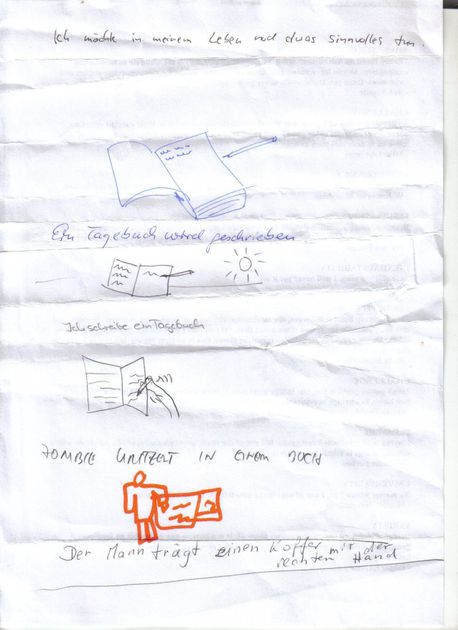 Ich möchte in meinem Leben noch etwas sinnvolles tun.
Ein Tagebuch wird geschrieben
Ich schreibe ein Tagebuch
ZOMBIE KRITZELT IN EINEM BUCH
Der Mann trägt einen Koffer mit der
rechten Hand